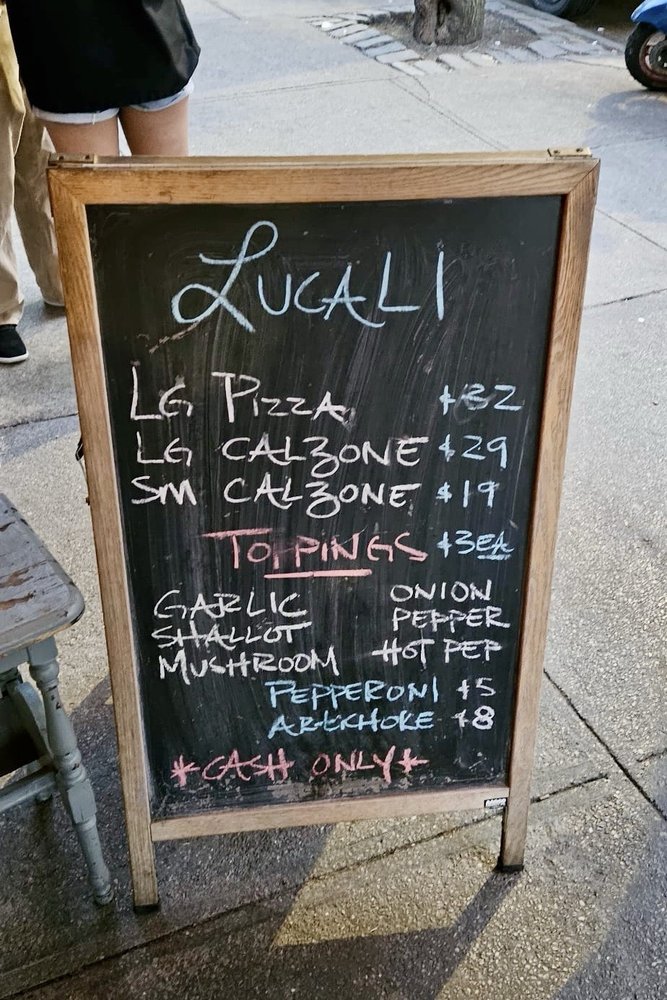 LUCALI
LG PIZZA $32
LG CALZONE $29
SM CALZONE $19
TOPPINGS $3 EA
GARLIC ONION
SHALLOT PEPPER
MUSHROOM HOT PEP
PEPPERONI $5
ARTICHOKE $8
*CASH ONLY*